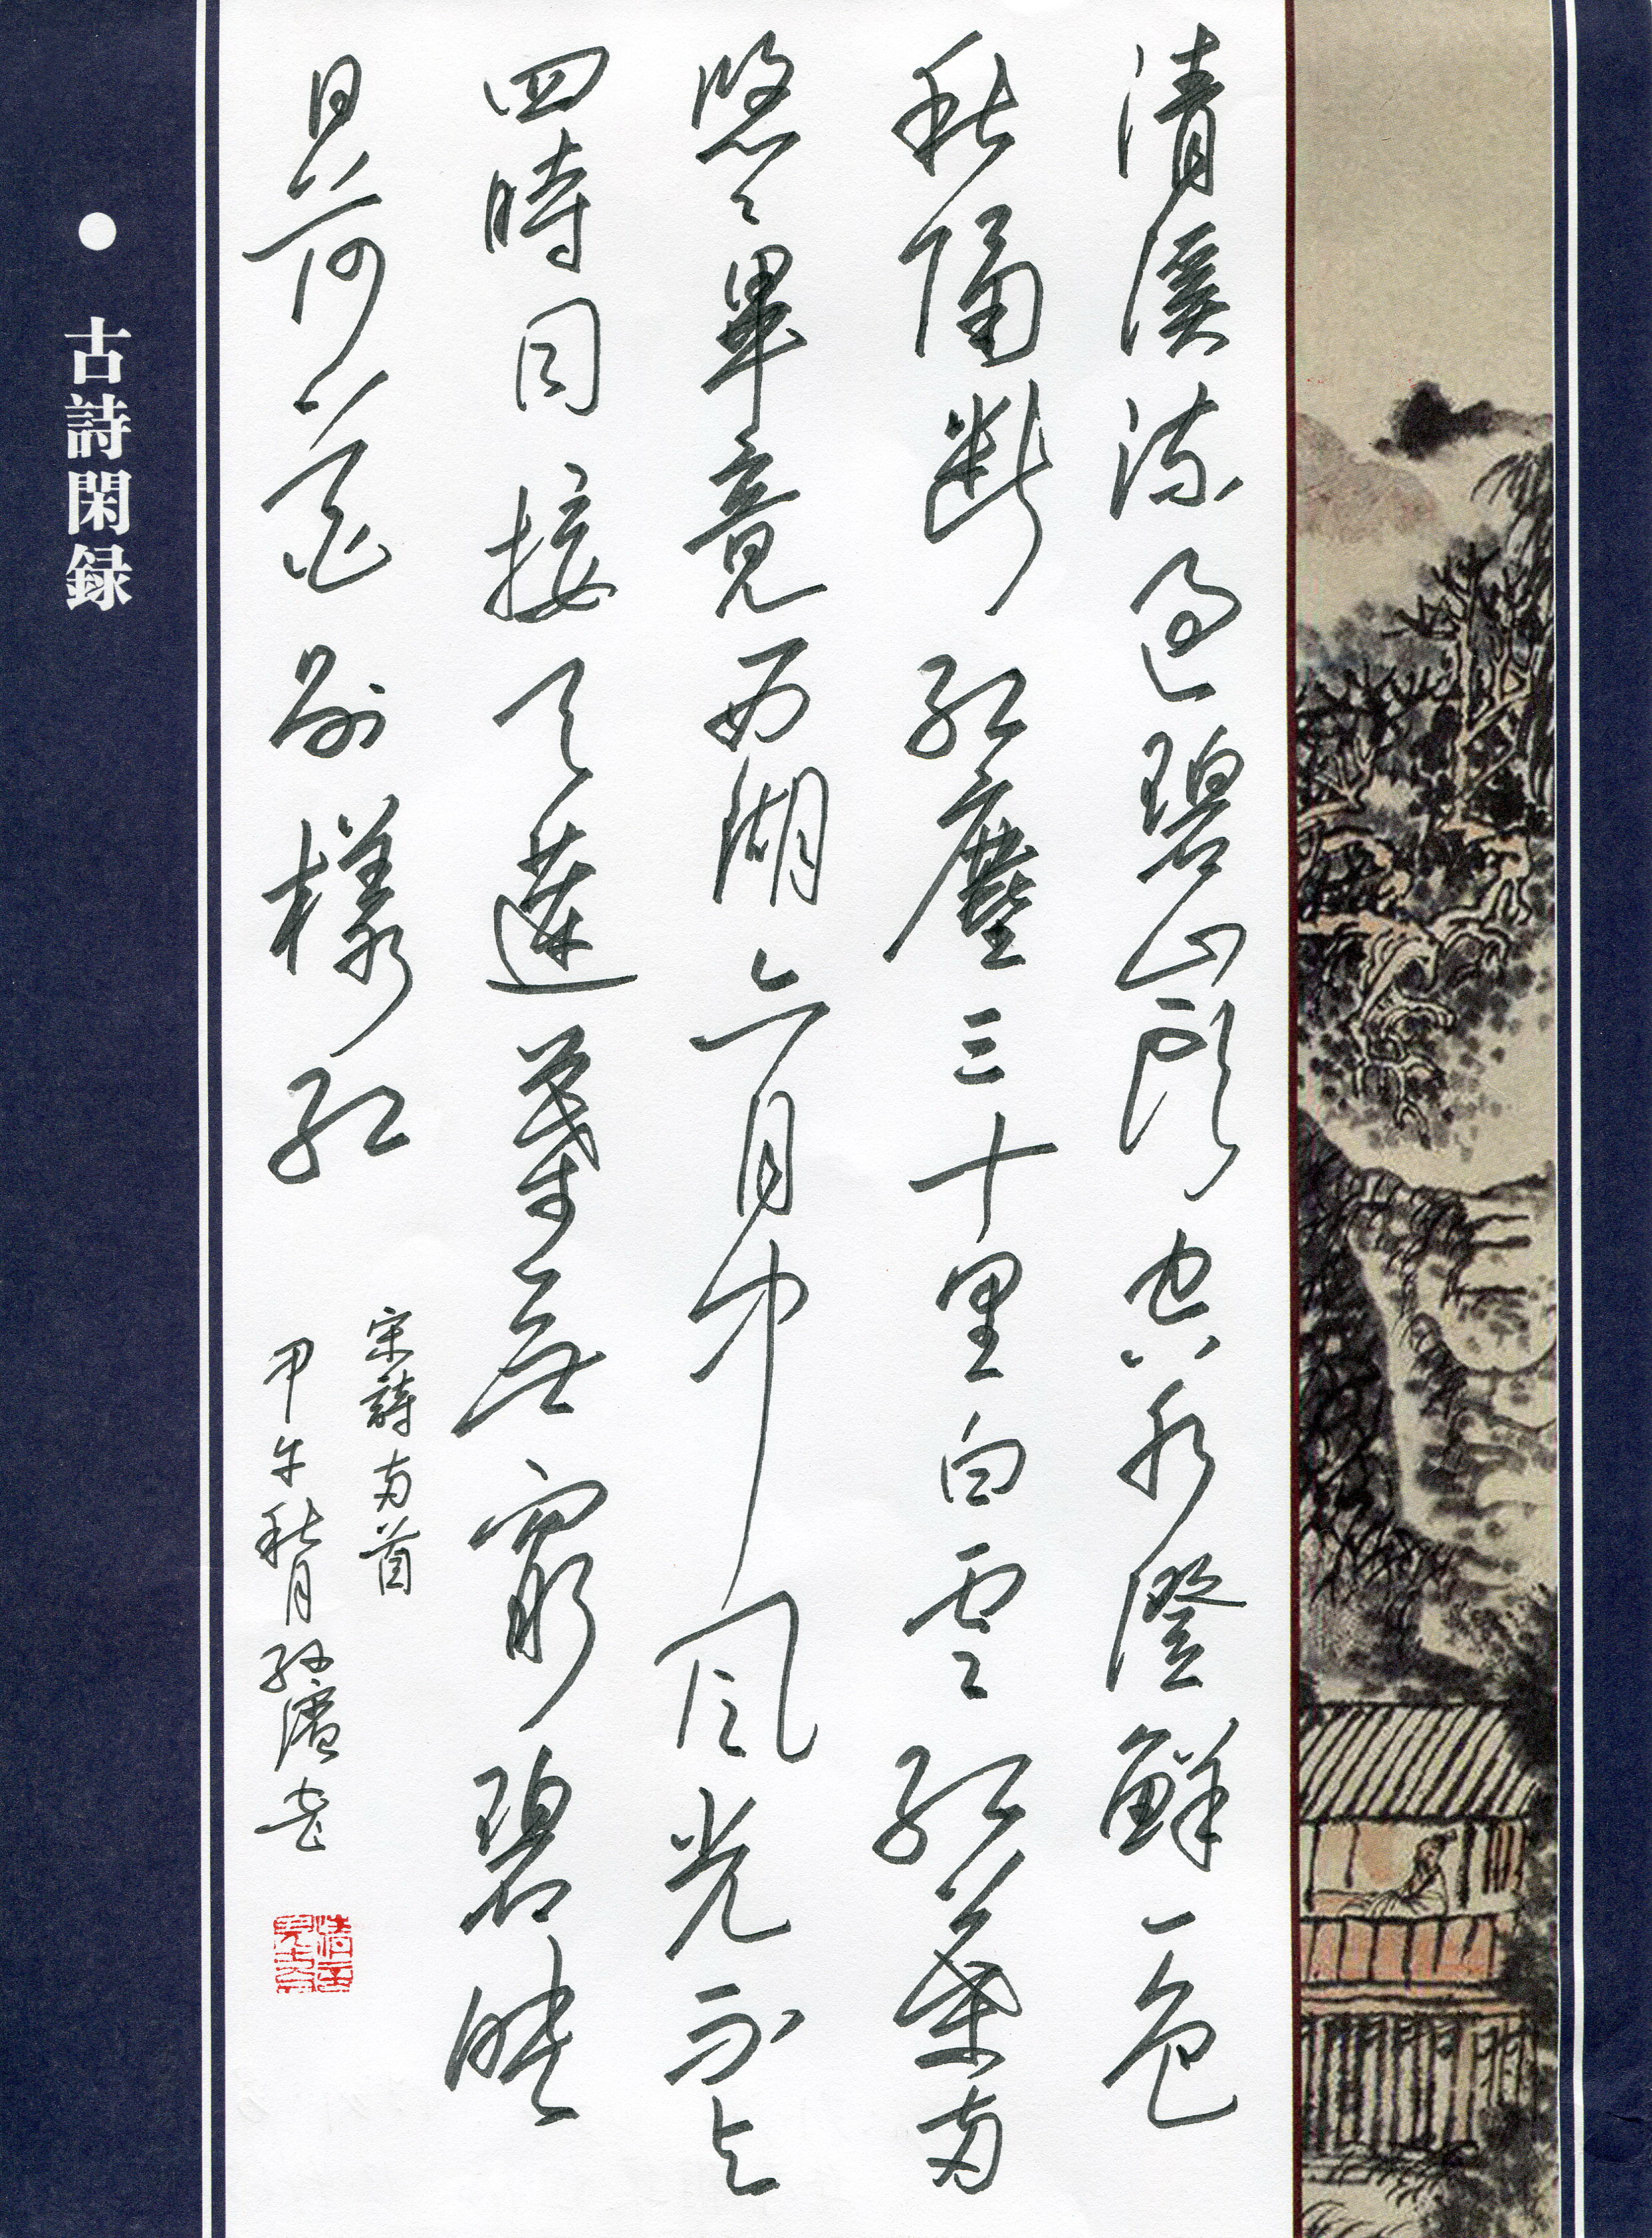 清溪流過碧山頭空水澄鮮一色
秋隔斷紅塵三十里白雲紅葉兩
悠々畢竟西湖六月中風光不與
四時同接天蓮葉無窮碧映
日荷花別樣紅
宋詩兩首
甲午秋月孫書
● 古詩閑録